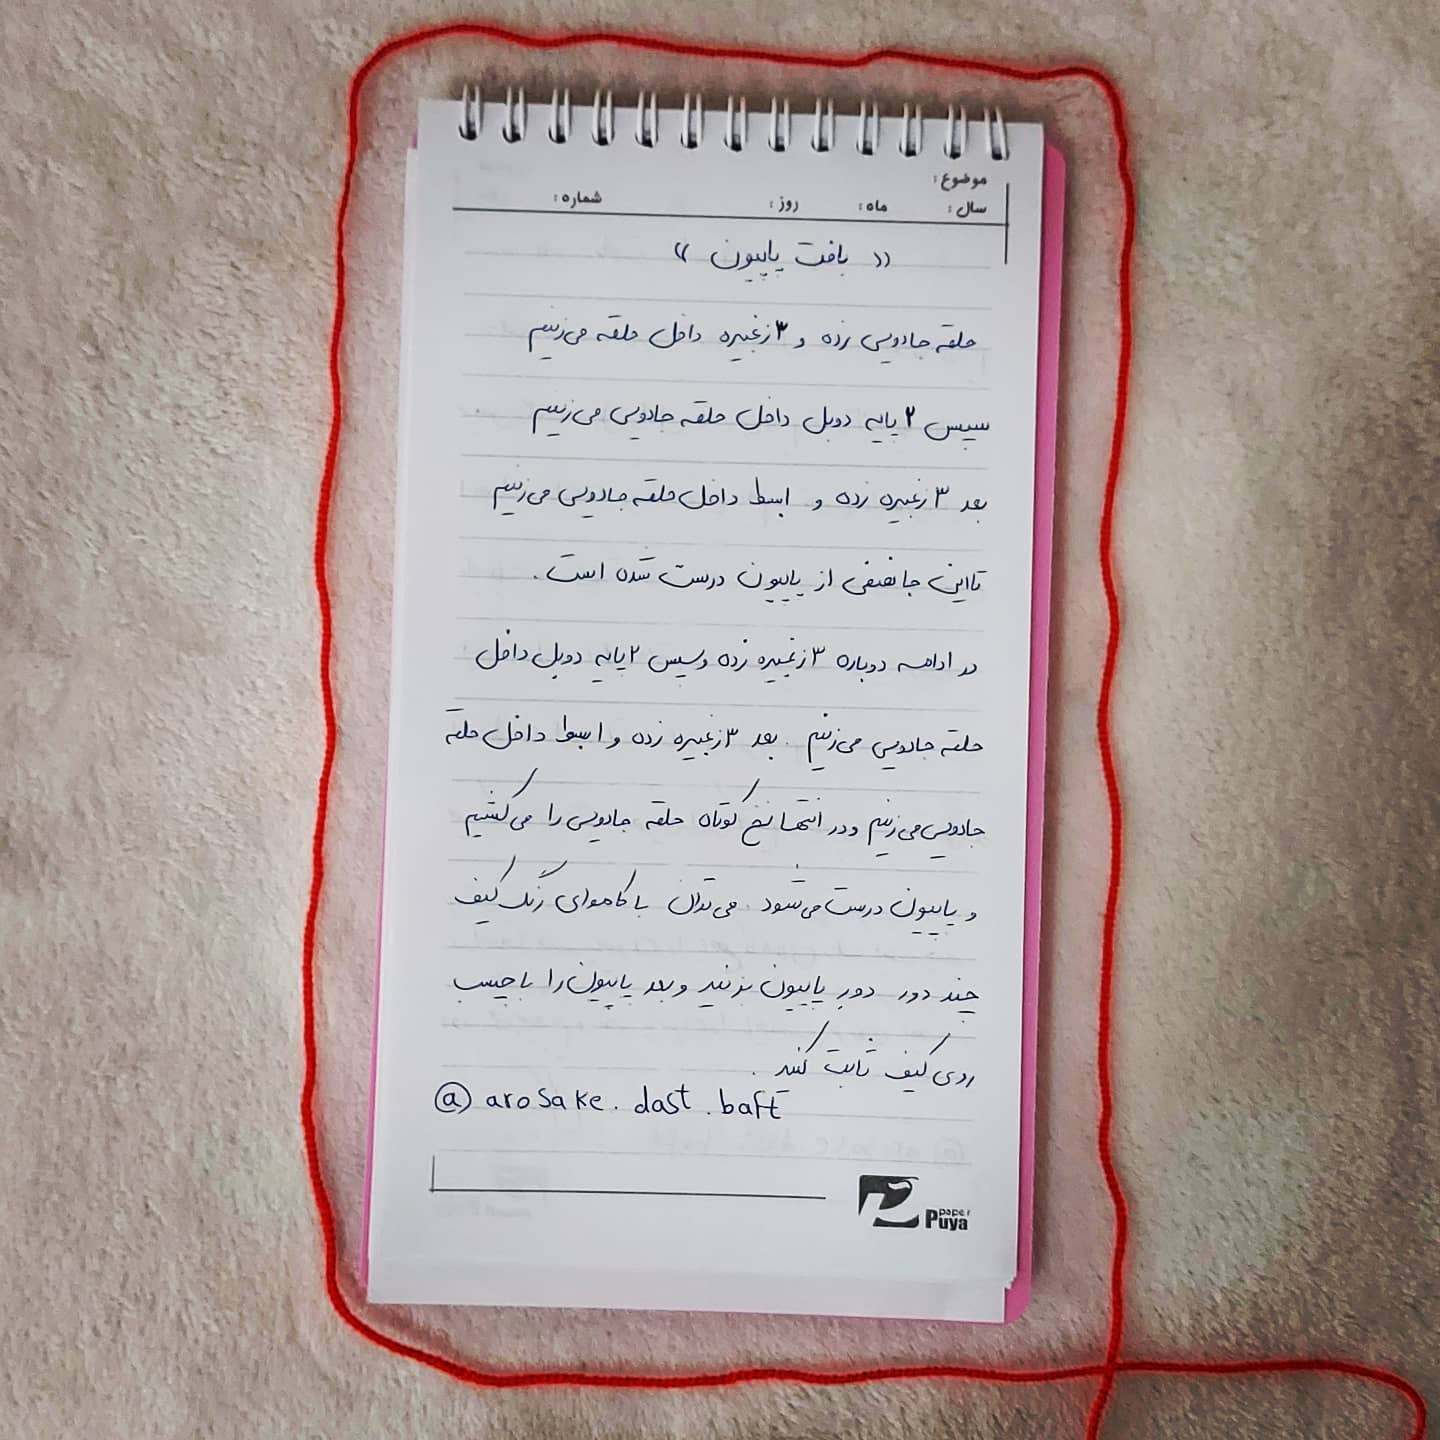 موضوع:
سال: ماه: روز: شماره:
« بافت پاپیون »
حلقه جادویی زده و ۳ زنجیره داخل حلقه می‌زنیم
سپس ۲ پایه دوبل داخل حلقه جادویی می‌زنیم
بعد ۳ زنجیره زده و ۱ بسط داخل حلقه جادویی می‌زنیم
تا این جا نصفی از پاپیون درست شده است.
در ادامه دوباره ۳ زنجیره زده و سپس ۲ پایه دوبل داخل
حلقه جادویی می‌زنیم. بعد ۳ زنجیره زده و ۱ بسط داخل حلقه
جادویی می‌زنیم و در انتها نخ کوتاه حلقه جادویی را می‌کشیم
و پاپیون درست می‌شود. می‌توان با کاموای رنگ کیف
چند دور دور پاپیون بزنید و بعد پاپیون را با چسب
روی کیف ثابت کنید.
@arosake.dast.baft
paper
Puya